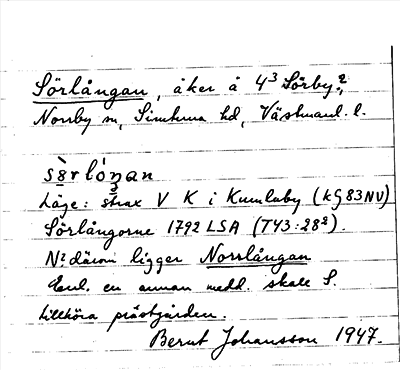 Sörlångan, åker å 4³ Sörby²,
Norrby sn, Simtuna hd, Västmanl. l.
sè̱rlóŋan
Läge: strax V K i Kumlaby (kg 83 NV)
Sörlångorne 1792 LSA (T43:28²).
N därom ligger Norrlångan
Enl. en annan medd. skall S.
tillhöra prästgården.
Bernt Johansson 1947.